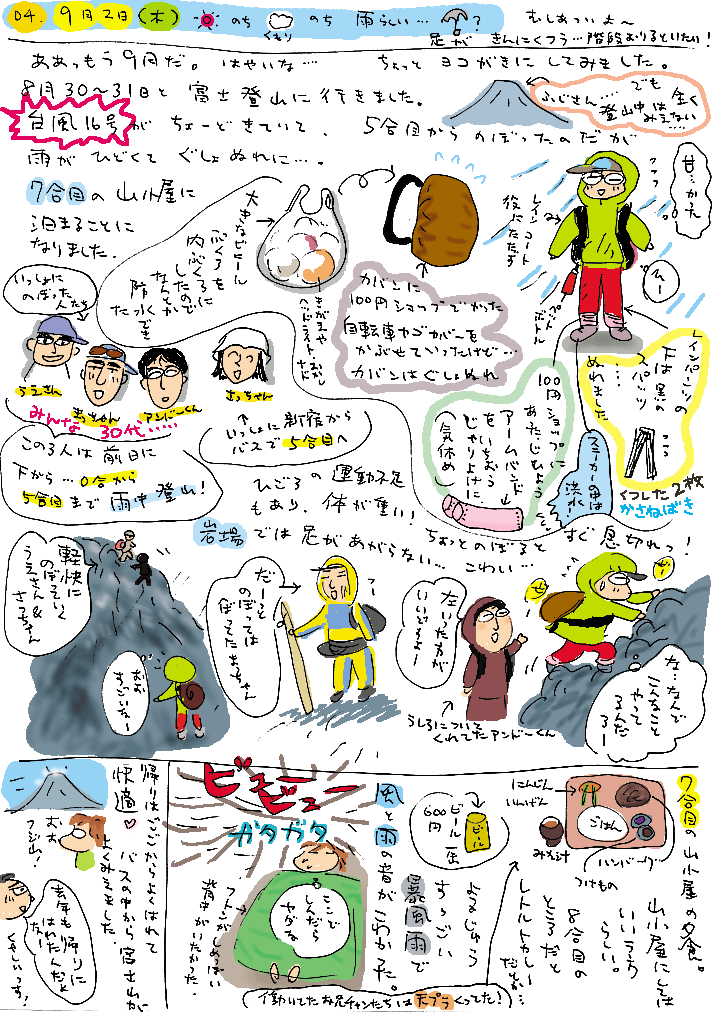 04. 9月2日(木) のち くもり のち 雨らしい…?
むしあつぃよ〜
足が きんにくつう…階段おりるといたい!
ああっもう9月だ。はやいな…
ちょっと ヨコがきに してみました。
8月30〜31日と 富士登山に行きました。
台風16号が ちょーどきていて、5合目からのぼったのだが
雨が ひどくて ぐしょぬれに…。
ふじさん…でも
登山中は 全く
みえない…
7合目の山小屋に
泊まることに
なりました。
大きなビニール
ぶくろを
内ぶくろに
したので
なんとか
防水できた
カバンに
100円ショップでかった
自転車カゴカバーを
かぶせていったけど…
カバンはぐしょぬれ
レインコート
役にたたず
甘…かった
ペットボトル
レインパーカの
下は黒の
スパッツ
……
ぬれました
いっしょに
のぼった人たち
うえさん
まっちゃん
アンドーくん
さっちゃん
みんな 30代……
いっしょに新宿から
バスで5合目へ
この3人は 前日に
下から…0合から
5合目まで 雨中登山!
100円ショップに
あったじもよう
アームバンド
をいちおう
じゃりよけに
(気休め)
スニーカーの中は
洪水!
くつした2枚
かさねばき
ひごろの運動不足
もあり、体が重い!
岩場では足があがらない… ちょっとのぼると すぐ 息切れっ!
こわい…
軽快に
のぼっていく
うえさん&
さっちゃん
おお
すっごいなー
だーっと
のぼっては
まっちゃん
左いった方が
いいですよー
うしろについて
くれてたアンドーくん
な…なんで
こんなこと
やって
るんだろー
帰りはごごからよくはれて
快適♡
バスの中から富士山が
よくみえました
おお
フジ山!
去年も帰りに
はれたんだよ
なー!
くやしいっす!
ビュービュー
ガタガタ
ここで
しんだら
ヤダな
フトンがしめっぽい
背中がいたかった。
風と雨の音がこわかった。
よるじゅう
すっごい
暴風雨で
ビール一缶
600円
ビール
7合目の山小屋の夕食。
にんじん
いんげん
ごはん
みそ汁
ハンバーグ
つけもの
山小屋にしては
いいほう
らしい。
8合目の
ところだと
レトルトカレー
だとか…
(働いてたお兄チャンたちは天プラくってた!)